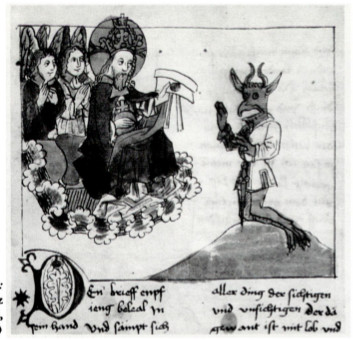 DEn brieff enpf
ieng belial in
sein hand vnd sampt sich
aller ding der sichtigen
vnd vnsichtigen der da
gew ant ist mit lob vnd